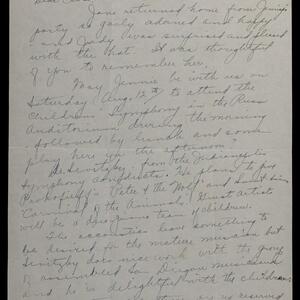 Jane returned home from Jenny's
party so gaily adorned and happy
and Judy was surprised and pleased
with the hat. It was thoughtful
of you to remember her.
May Jennie be with us on
Saturday Aug. 12th to attend the
Children's Symphony in the Russ
Auditorium during the morning
followed by lunch and some
play here for the afternoon?
Sevitzky, from the Indianapolis
Symphony conducts. He plans to
Prokofieff's "Peter & the Wolf" and Saint Saens
"Carnival of the Animals". Guest Artists
will be a duo piano team of children.
The acoustics leave something to
be desired for the mature musician but
Sevitzky does nice work with the group
of assembled San Diegan musicians
and he is delightful with the children.